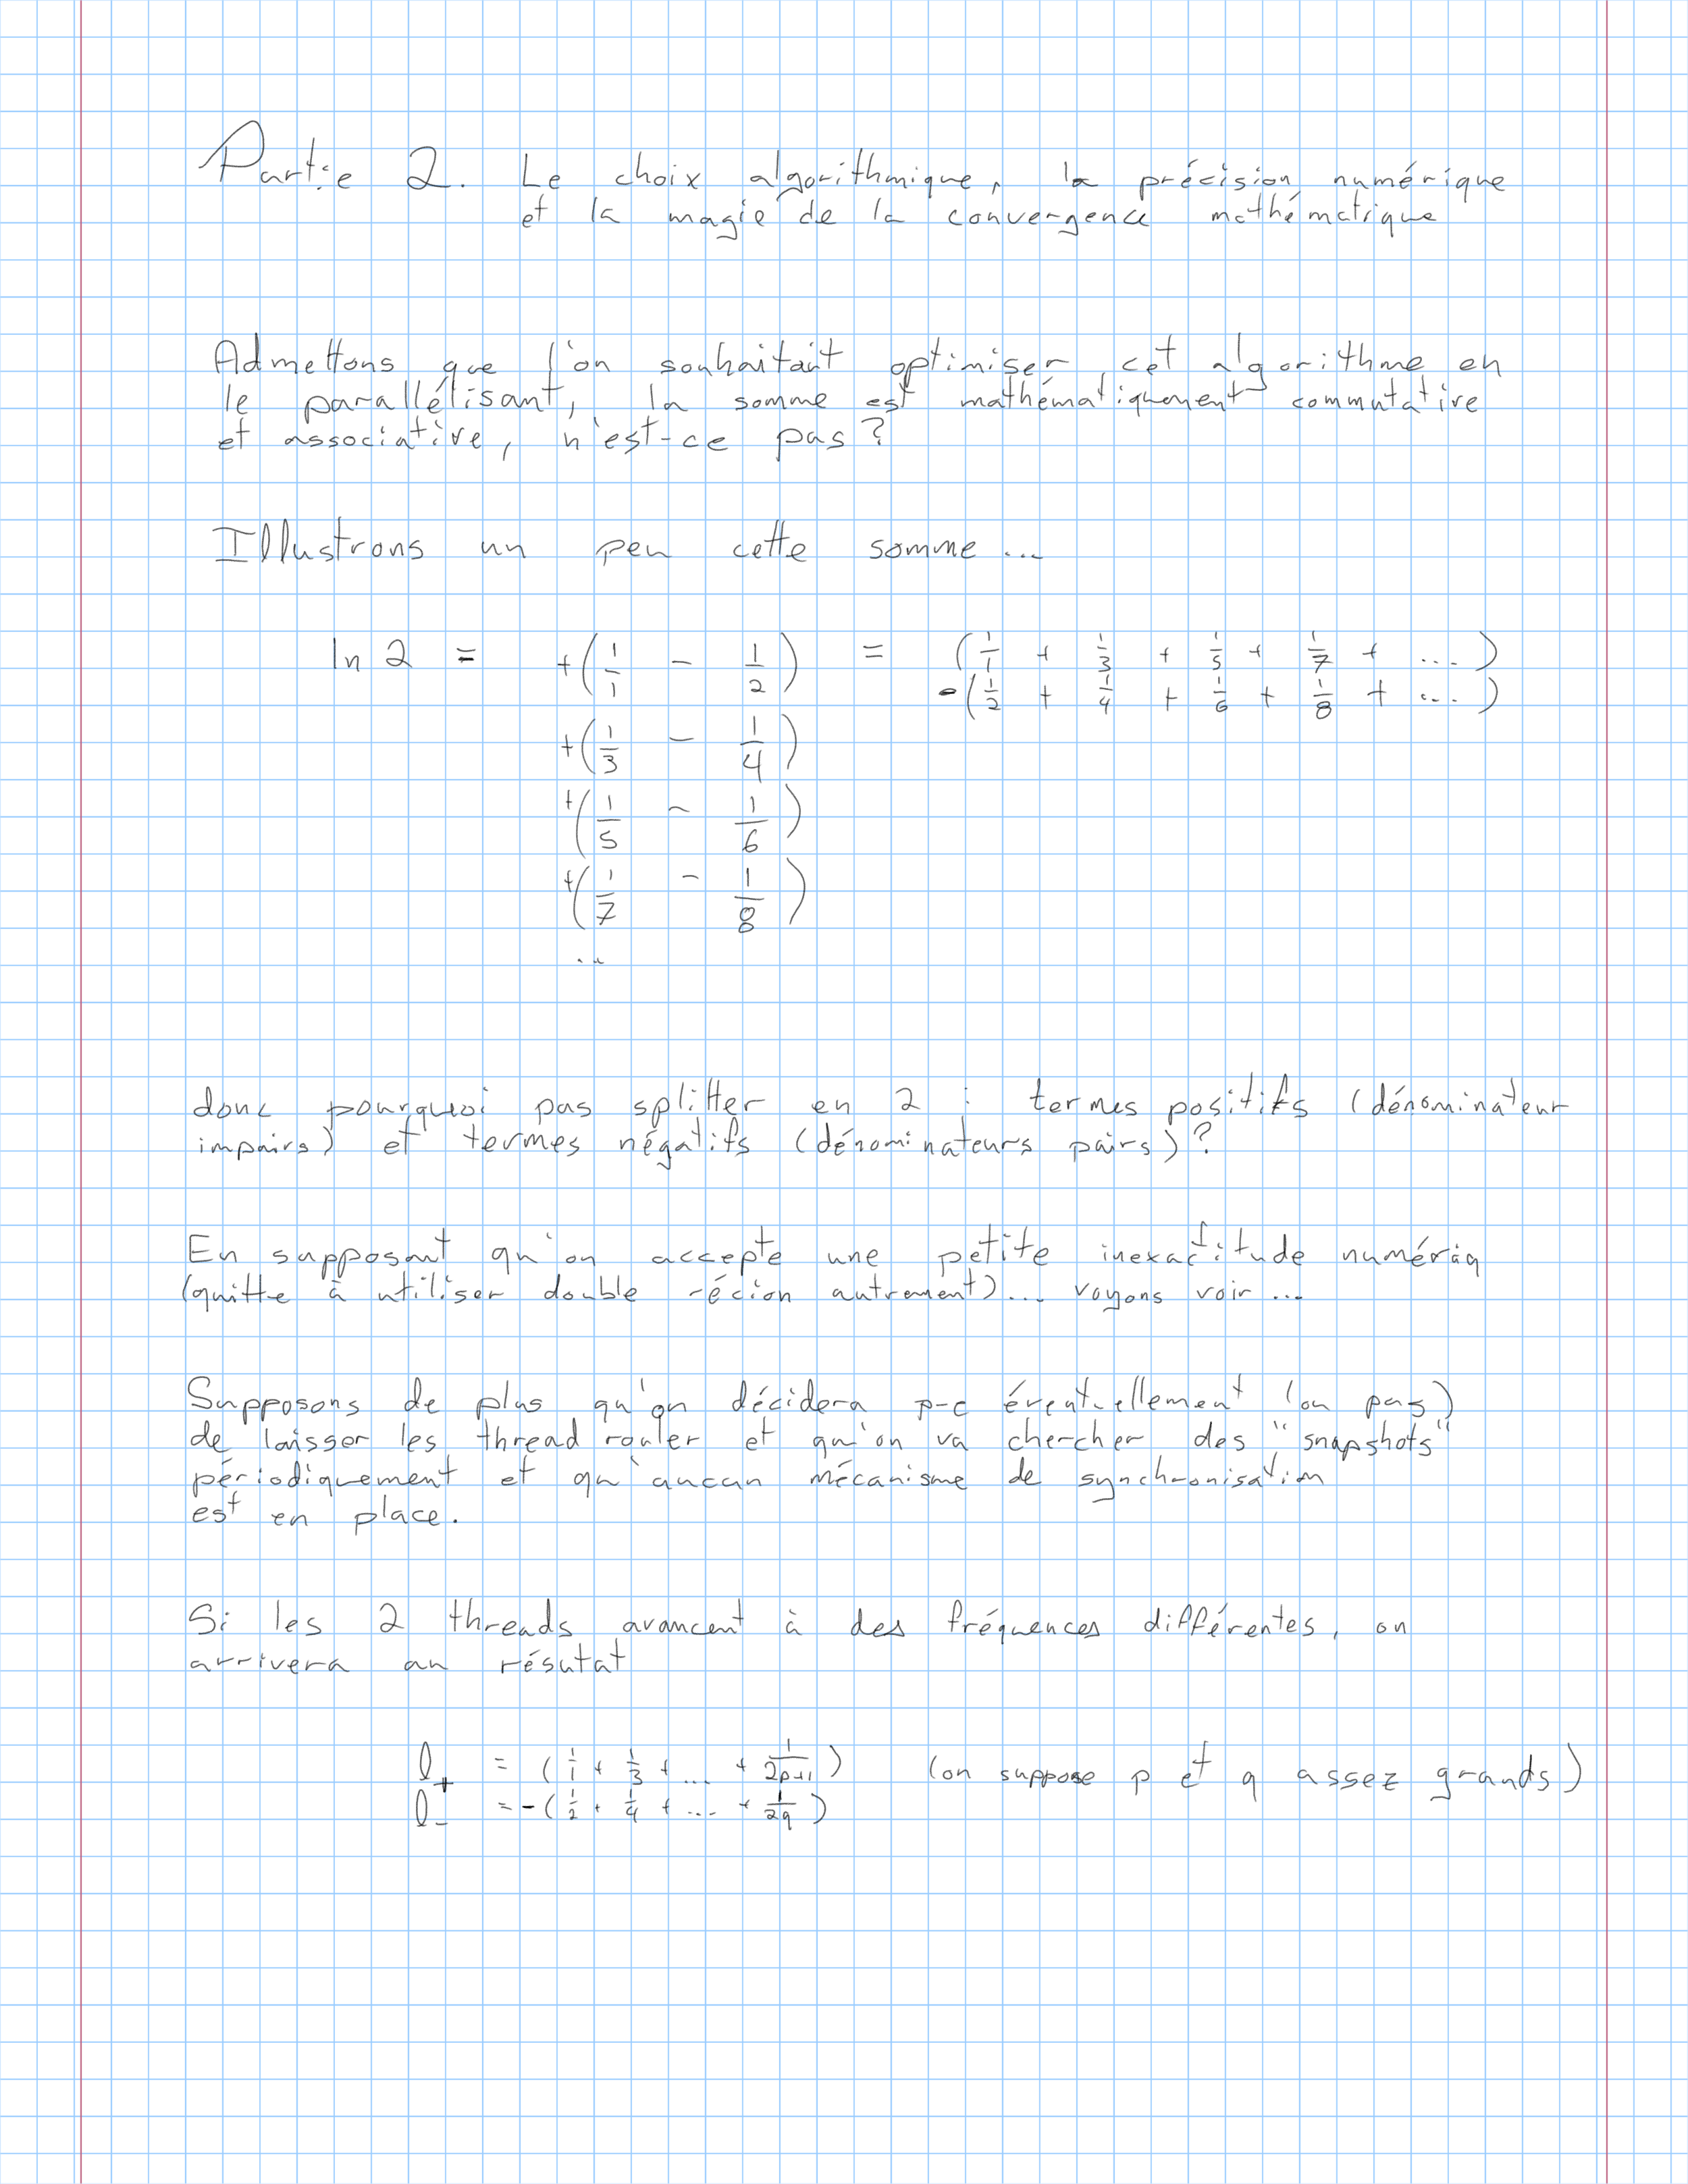 Partie 2. Le choix algorithmique, la précision numérique
et la magie de la convergence mathématique
Admettons que l'on souhaitait optimiser cet algorithme en
le parallélisant, la somme est mathématiquement commutative
et associative, n'est-ce pas ?
Illustrons un peu cette somme ...
ln 2 = +(1/1 - 1/2) = (1/1 + 1/3 + 1/5 + 1/7 + ...)
-(1/2 + 1/4 + 1/6 + 1/8 + ...)
+(1/3 - 1/4)
+(1/5 - 1/6)
+(1/7 - 1/8)
...
donc pourquoi pas splitter en 2 : termes positifs (dénominateur
impairs) et termes négatifs (dénominateurs pairs) ?
En supposant qu'on accepte une petite inexactitude numériq
(quitte à utiliser double -écion autrement) ... voyons voir ...
Supposons de plus qu'on décidera p-ê éventuellement (ou pas)
de laisser les thread rouler et qu'on va chercher des "snapshots"
périodiquement et qu'aucun mécanisme de synchronisation
est en place.
Si les 2 threads avancent à des fréquences différentes, on
arrivera au résutat
l+ = (1/1 + 1/3 + ... + 1/2p+1) (on suppose p et q assez grands)
l- = -(1/2 + 1/4 + ... + 1/2q)